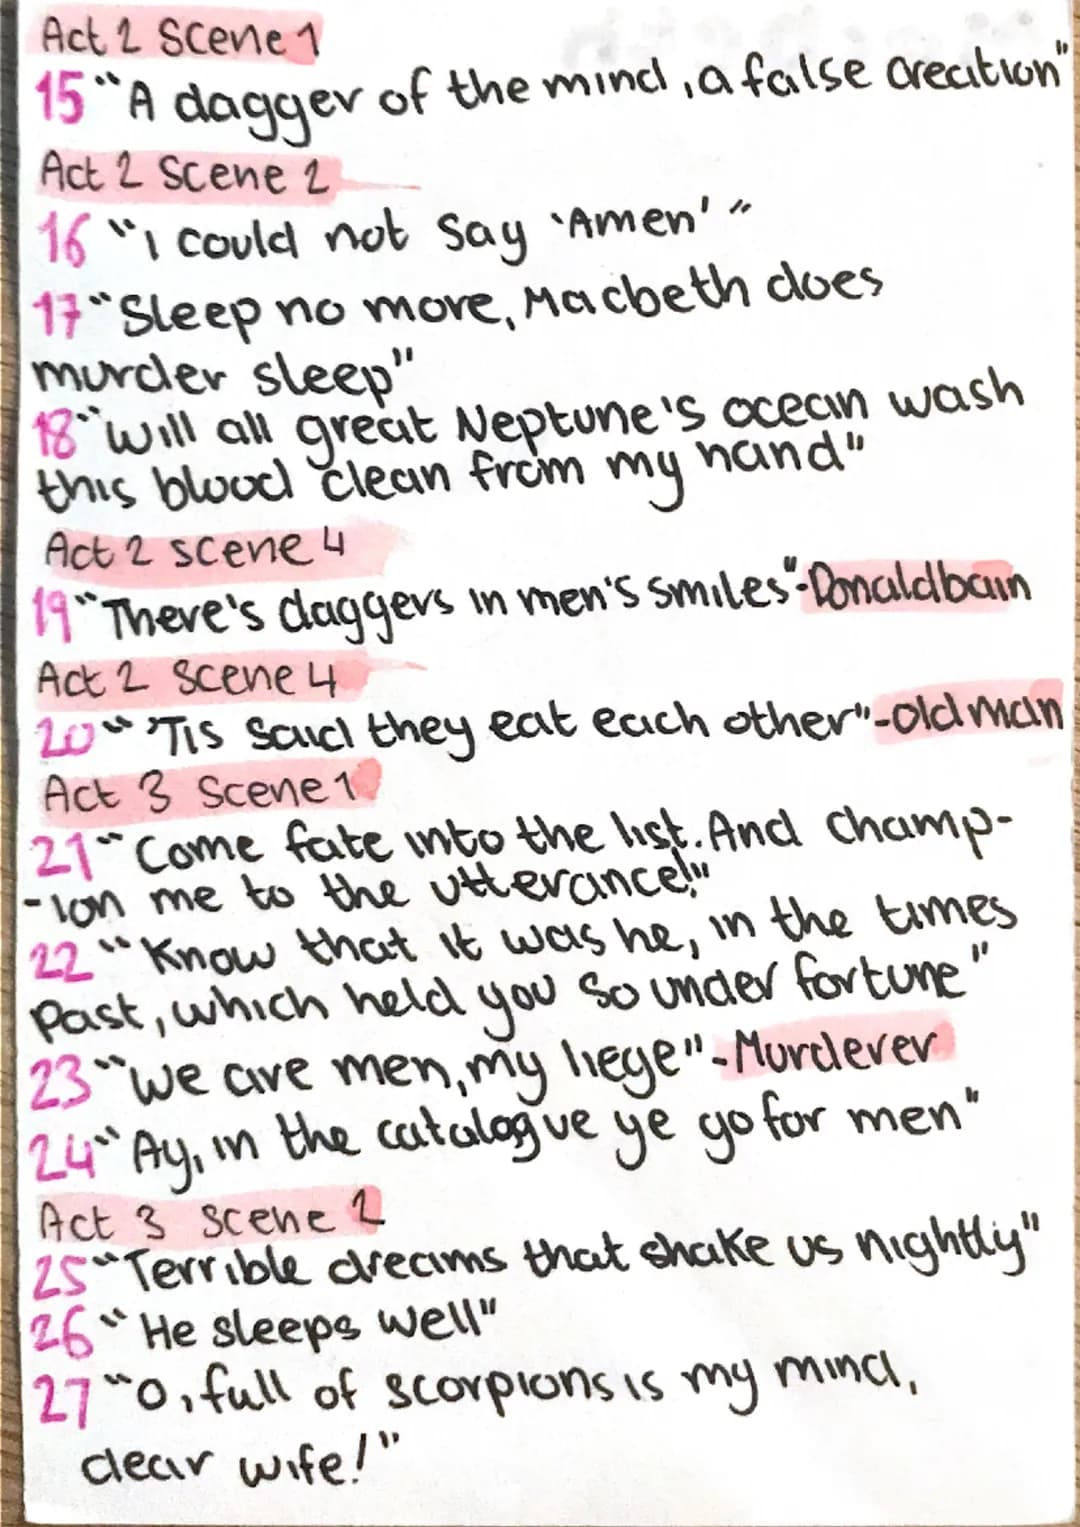 Act 2 Scene 1
15 "A dagger of the mind, a false creation"
Act 2 Scene 2
16 "I could not say 'Amen' "
17 "Sleep no more, Macbeth does
murder sleep"
18 "Will all great Neptune's ocean wash
this blood clean from my hand"
Act 2 scene 4
19 "There's daggers in men's smiles"-Donaldbain
Act 2 Scene 4
20 " 'Tis said they eat each other"-old man
Act 3 Scene 1
21 "Come fate into the list. And champ-
-ion me to the utterance!"
22 "Know that it was he, in the times
Past, which held you so under fortune"
23 "We are men, my liege"-Murderer
24 "Ay, in the catalogue ye go for men"
Act 3 Scene 2
25 "Terrible dreams that shake us nightly"
26 "He sleeps well"
27 "O, full of scorpions is my mind,
dear wife!"